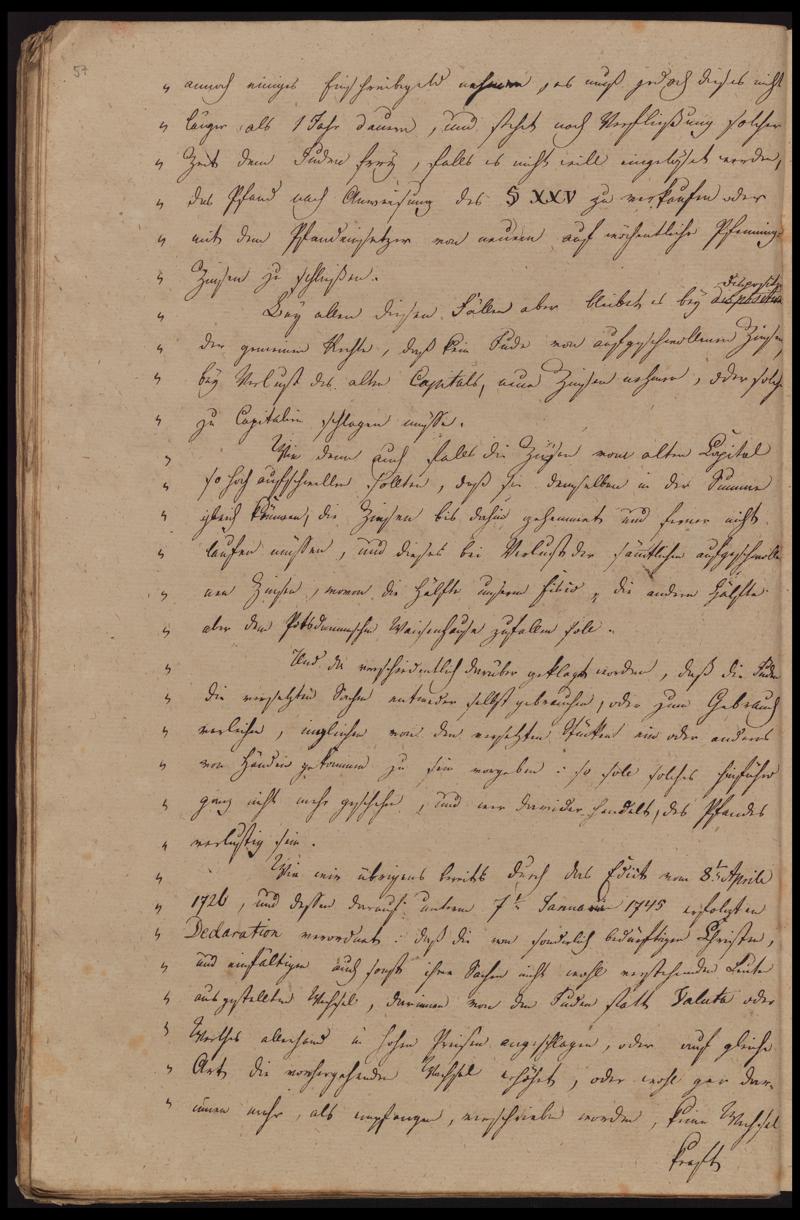 57
„ annoch einiges Einschreibegeld nehmen, es muß jedoch dieses nicht
„ länger als 1 Jahr dauern, und stehet nach Verfließung solcher
„ Zeit dem Juden frey, falls es nicht will eingelöset werden,
„ das Pfand nach Anweisung des § XXV zu verkaufen oder
„ mit dem Pfandeinsetzer von neuem auf wöchentliche Pfenning-
„ Zinsen zu schließen.
„ Bey allen diesen Fällen aber bleibet es bey Disposition
„ der gemeinen Rechte, daß kein Jude von aufgeschwollenen Zinsen,
„ bey Verlust des alten Capitals, neue Zinsen nehmen, oder solche
„ zu Capitalien schlagen müsse.
„ Wie denn auch falls die Zinsen vom alten Capital
„ so hoch aufschwellen sollten, daß sie demselben in der Summe
„ gleich kommen, die Zinsen bis dahin gehemmet und ferner nicht
„ laufen müssen, und dieses bei Verlust der sämtlichen aufgeschwolle-
„ nen Zinsen, wovon die Hälfte unserm Fisco, die andere Hälfte
„ aber dem Potsdammschen Waisenhause zufallen soll.
„ Und da verschiedentlich darüber geklagt worden, daß die Juden
„ die versetzten Sachen entweder selbst gebrauchen, oder zum Gebrauch
„ verleihen, imgleichen von den versetzten Stücken ein oder anderes
„ von Händen gekommen zu sein vorgeben: so soll solches hinführo
„ ganz nicht mehr geschehen, und wer dawider handelt, des Pfandes
„ verlustig sein.
„ Wie wir übrigens bereits durch das Edict vom 8ten Aprile
„ 1726, und dessen darauf unterm 7ten Januarii 1745 erfolgten
„ Declaration verordnet: daß die von sonderlich bedürftigen Christen,
„ und einfältigen auch sonst ihre Sachen nicht wohl verstehenden Leute
„ ausgestellten Wechsel, darinnen von den Juden statt Valuta oder
„ Werthes allerhand in hohen Preisen angeschlagen, oder auf gleiche
„ Art die vorhergehenden Wechsel erhöhet, oder wohl gar dar-
„ innen mehr, als empfangen, verschrieben worden, keine Wechsel
kraft